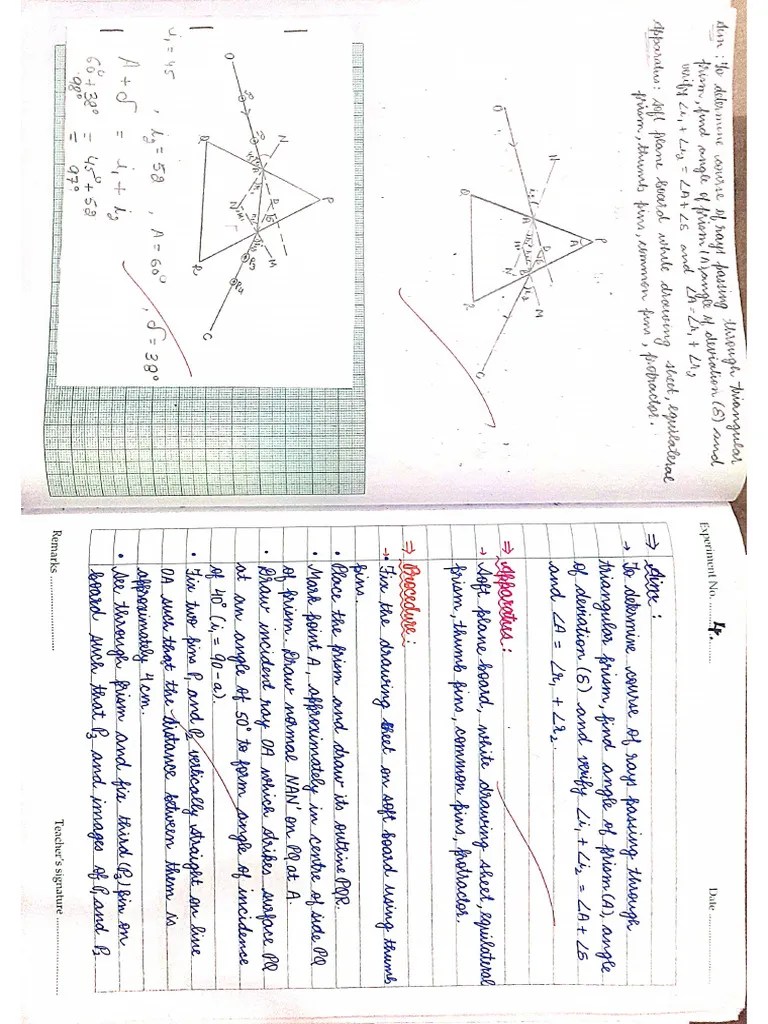 Aim : To determine course of rays passing through triangular
prism, find angle of prism (A), angle of deviation (δ) and
verify ∠i1 + ∠i2 = ∠A + ∠δ and ∠A = ∠r1 + ∠r2
Apparatus : soft plane board white drawing sheet, equilateral
prism, thumb pins, common pins, protractor.
P
A
N
M
O
Q
R
C
P
N
M
O
Q
R
C
i1 = 45 , i2 = 52 , A = 60° , δ = 38°
A + δ = i1 + i2
60° + 38° = 45° + 52
98° = 97°
Experiment No. 4. Date
⇒ Aim :
→ To determine course of rays passing through
triangular prism, find angle of prism (A), angle
of deviation (δ) and verify ∠i1 + ∠i2 = ∠A + ∠δ
and ∠A = ∠r1 + ∠r2.
⇒ Apparatus :
→ Soft plane board, white drawing sheet, equilateral
prism, thumb pins, common pins, protractor.
⇒ Procedure :
→ • Fix the drawing sheet on soft board using thumb
pins.
• Place the prism and draw its outline PQR.
• Mark point A, approximately in centre of side PQ
of prism. Draw normal NAN' on PQ at A.
• Draw incident ray OA which strikes surface PQ
at an angle of 50° to form angle of incidence
of 40° (i = 90 - a).
• Fix two pins P1 and P2 vertically straight on line
OA such that the distance between them is
approximately 4 cm.
• See through prism and fix third (P3) pin on
board such that P3 and images of P1 and P2
Remarks Teacher's signature